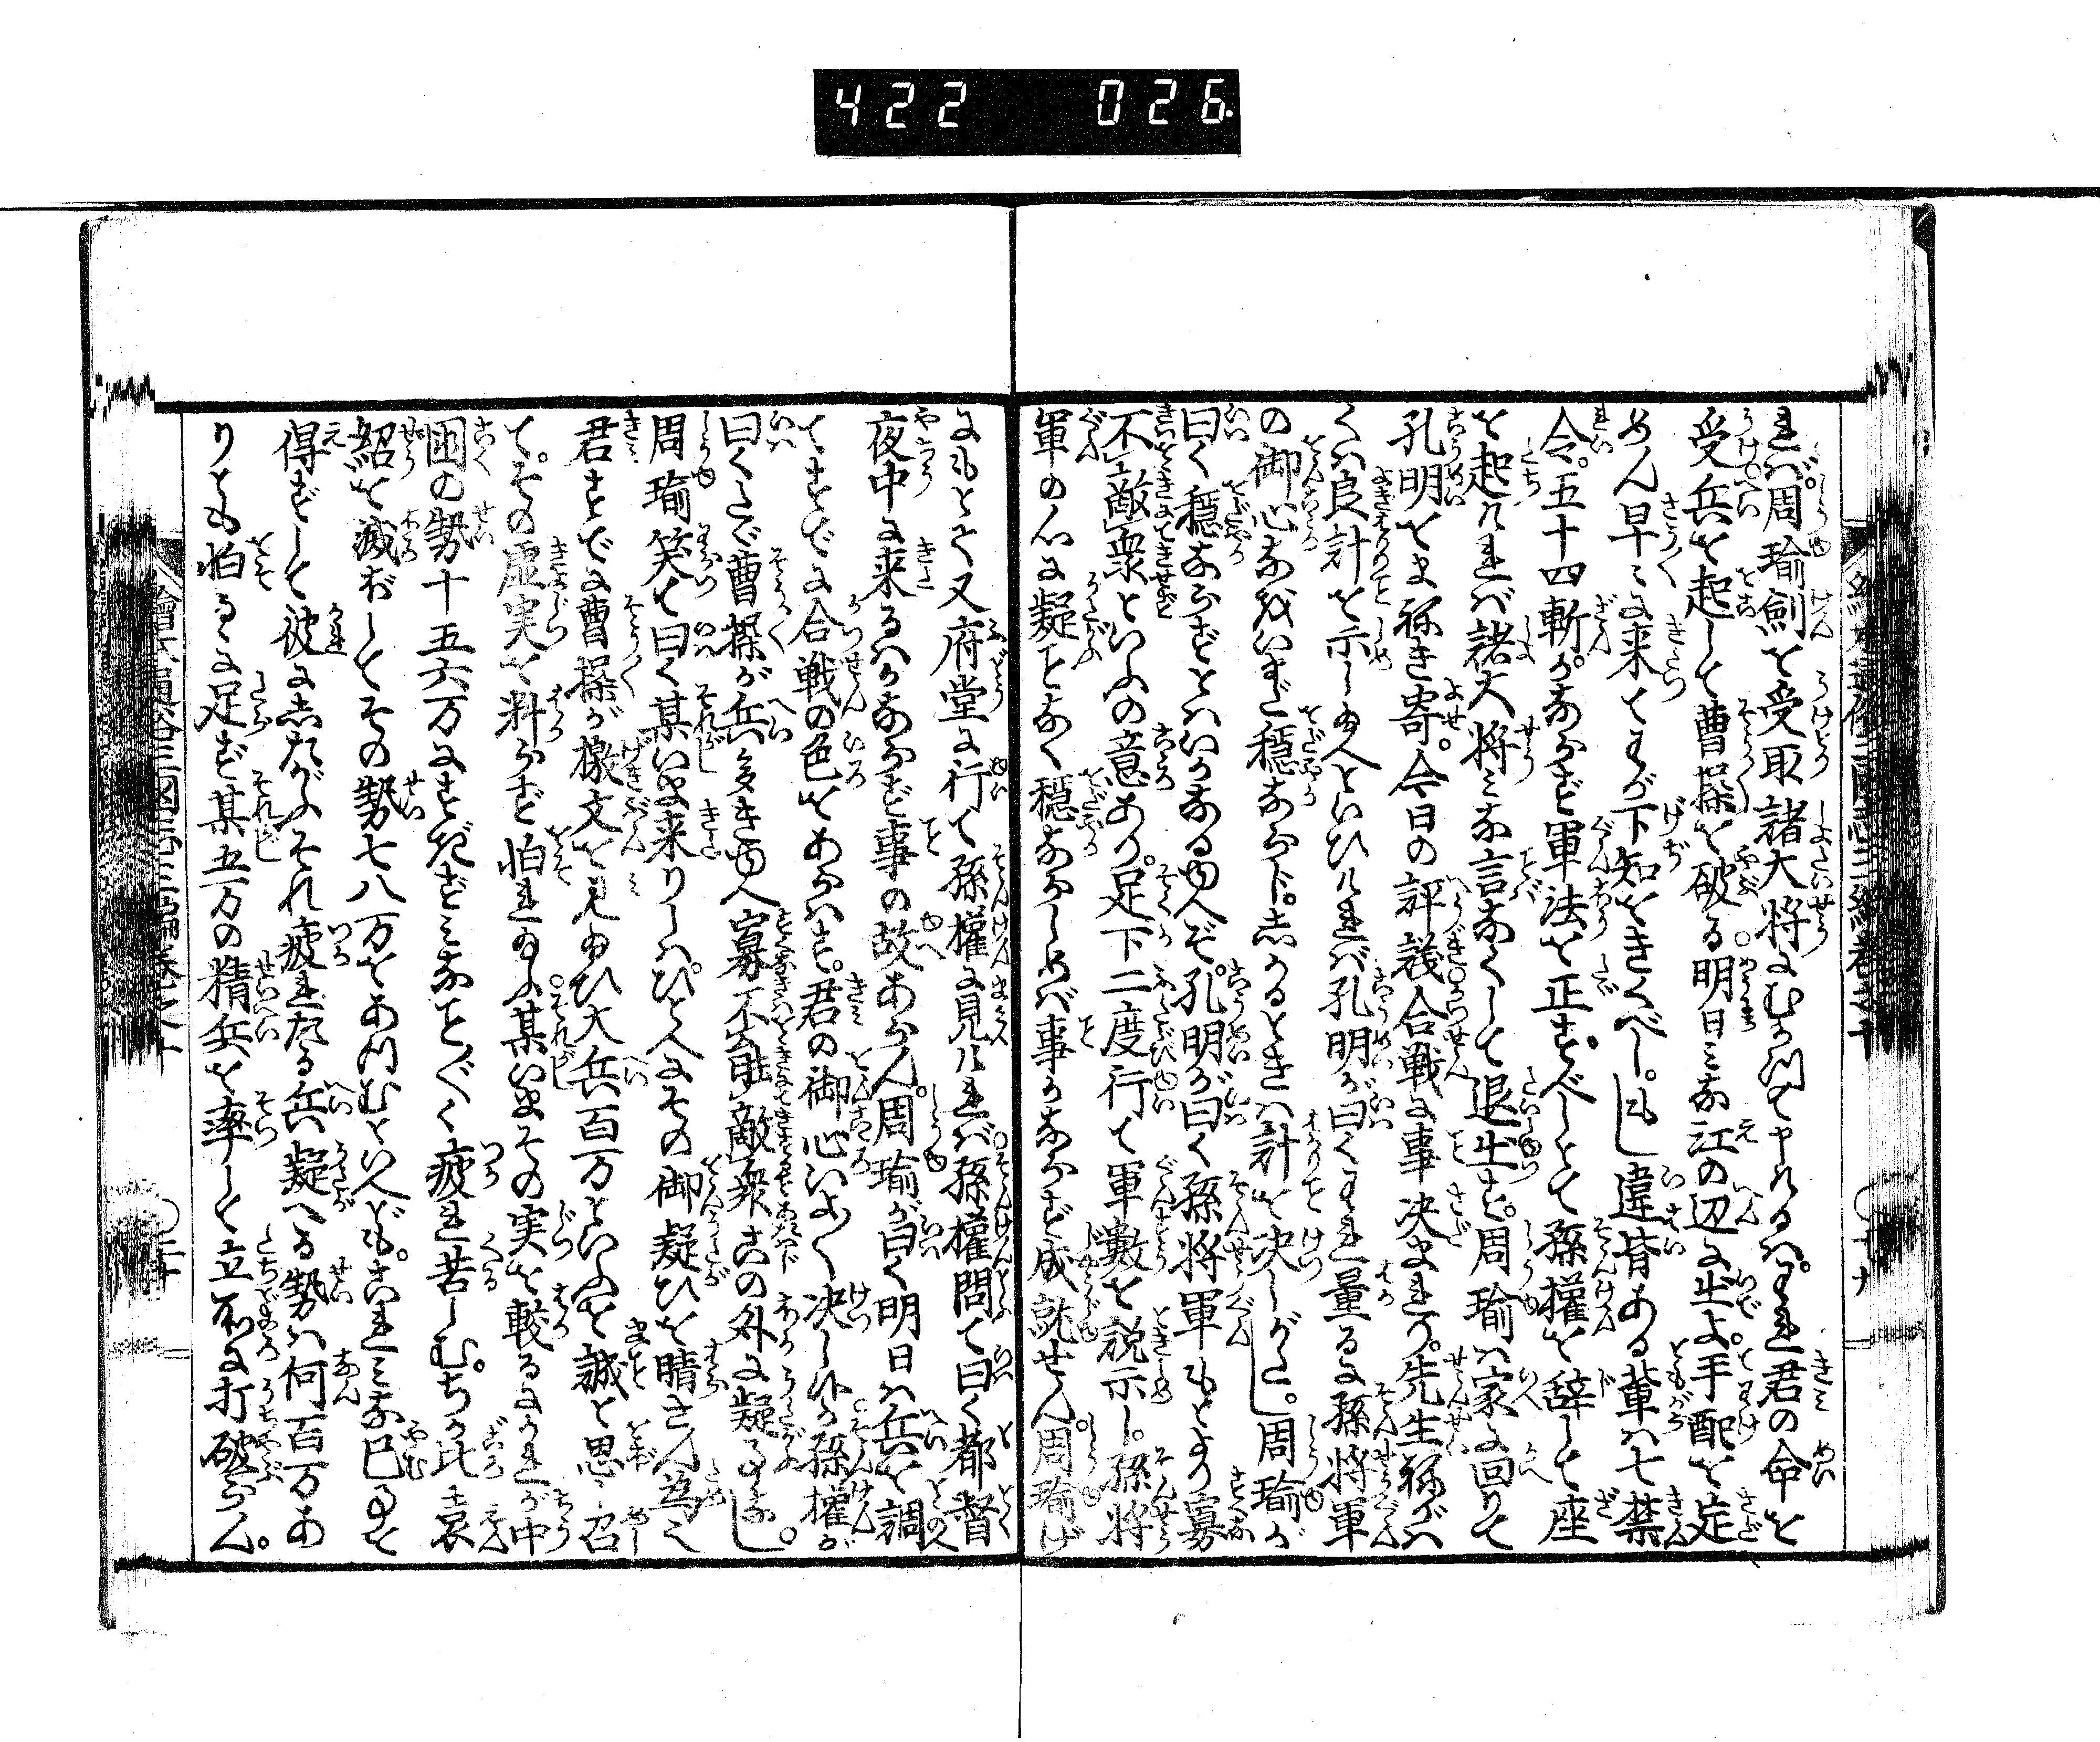 422 026
れば。周瑜劍を受取諸大将にむかつて申けるは。われ君の命を
受兵を起して曹操を破る。明日みな江の辺に出よ。手配を定
めん早々に来てわが下知をきくべし。もし違背ある輩は七禁
令。五十四斬。かならず軍法を正すべしとて孫權を辞して座
を起ければ諸大将みな言なくして退出す。周瑜は家に回りて
孔明をまねき寄。今日の評議合戦に事決まれり。先生ねがは
くは良計を示し給へといひければ孔明が曰くわれ量るに孫将軍
の御心なをいまだ穏ならず。しかるときは計を決しがたし。周瑜が
曰く穏ならずとはいかなる由へぞ。孔明が曰く孫将軍もとより寡
不敵衆といふの意あり。足下二度行て軍数を説示し。孫将
軍の心に疑となく穏ならしめば事かならず成就せん。周瑜げ
にもとて又府堂に行て孫權に見ければ孫權問て曰く都督
夜中に来るはかならず事の故あらん。周瑜が曰く明日は兵を調
てすでに合戦の色をあらはす。君の御心いよ〱決し候か孫權が
曰くたゞ曹操が兵多き由へ寡不能敵衆此の外に疑ふ事なし。
周瑜笑て曰く某いま来りしはひとへにその御疑ひを晴さん為也
君すでに曹操が檄文を見給ひ大兵百万といふを誠と思召
て。その虚実を料らず怕れ給ふ某いまその実を較るにかれが中
国の勢十五六万にすぎずみなことごとく疲れ苦しむ。ちか比袁
紹を滅ぼしてその勢七八万をあつむといへども。これみな已事を
得ずして彼にしたがふそれ疲れたる兵疑へる勢は何百万あ
りとも怕るゝに足ず某五万の精兵を率して立所に打破らん。